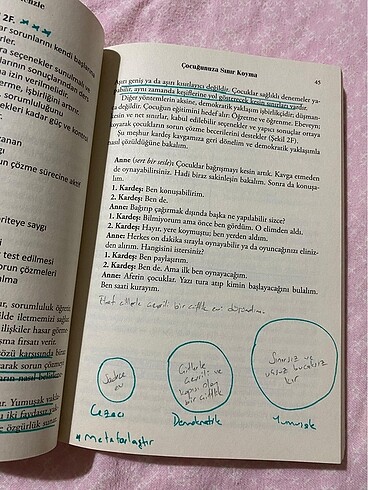 enzie
2F.
ar sorunlarını kendi başlarına
erler.
ra seçenekler sunulmalı ve
rının sonuçlarından de
na izin verilmelidir.
erme, işbirliğini artırır.
sorumluluğunu
ekleri kadar güç ve kontrol
anan
run çözme sürecine aktif
eriteye saygı
r test edilmesi
orun çözmeleri
alma
r, sorumluluk öğrenir
ilde iletmemizi sağlar
ilişkiler hasar görme
şma fırsatı verir.
özü karşısında
arak sorun çözmeyi
Yumuşak
iki faydasız
e özgürlük
Çocuğunuza Sınır Koyma
45
Aşırı geniş ya da aşırı kısıtlayıcı değildir. Çocuklar sağlıklı denemeler ya-
pabilir, aynı zamanda keşiflerine yol gösterecek kesin sınırları vardır.
Diğer yöntemlerin aksine, demokratik yaklaşım işbirlikçidir; düşman-
ca değildir. Çocuğun eğitimini hedef alır: Öğretme ve öğrenme. Ebeveyn;
kesin ve net sınırlar, kabul edilebilir seçenekler ve yapıcı sonuçlar ortaya
koyarak çocukların sorun çözme becerilerini destekler (Şekil 2F).
Şu meşhur kardeş kavgamıza geri dönelim ve demokratik yaklaşımla
nasıl çözüldüğüne bakalım.
Anne (sert bir sesle): Çocuklar bağrışmayı kesin artık. Kavga etmeden
de oynayabilirsiniz. Hadi biraz sakinleşin bakalım. Sonra da konuşa-
lım.
1. Kardeş: Ben konuşabilirim.
2. Kardeş: Ben de.
Anne: Bağırıp çağırmak dışında başka ne yapılabilir sizce?
1. Kardeş: Bilmiyorum ama önce ben gördüm. O elimden aldı.
2. Kardeş: Hayır, yere koymuştu; ben yerden aldım.
Anne: Herkes on dakika sırayla oynayabilir ya da oyuncağınızı eliniz-
den alırım. Hangisini istersiniz?
1. Kardeş: Ben paylaşırım.
2. Kardeş: Ben de. Ama ilk ben oynayacağım.
Anne: Afezin çocuklar. Yazı tura atıp kimin başlayacağını bulalım.
Ben saati kurayım.
çitlerle çevrili bir çiftlik evi düşündüm.
Sadece
ev
Çitlerle
çevrili ve
kapısı olan
bir çiftlik
Sınırsız ve
uçsuz bucaksız
kır
Cezacı
Demokratik
Yumuşak
* Metaforlaştır